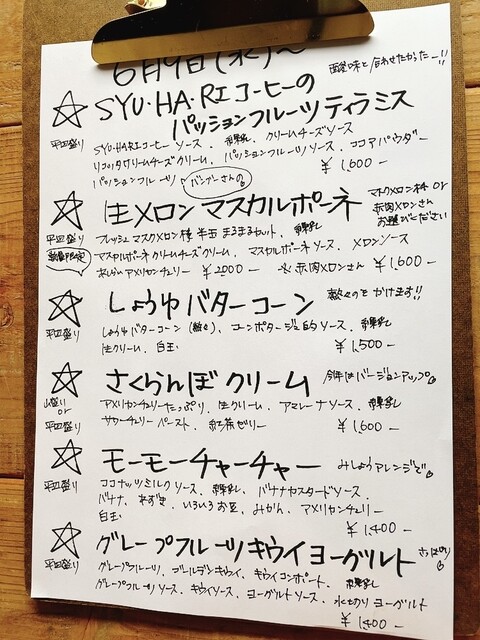 6月9日(水)〜
酸味と合わせたかったー!!
SYU・HA・RIコーヒーの
パッションフルーツティラミス
平皿盛り
SYU・HARIコーヒーソース、練乳、クリームチーズソース
リコッタクリームチーズクリーム、パッションフルーツソース、ココアパウダー
パッションフルーツ ¥1,600-
生メロンマスカルポーネ
マスクメロン様 or
赤肉メロンさん
お選びください
平皿盛り
数量限定
フレッシュマスクメロン様 半玉 まるまるセット、練乳
マスカルポーネクリームチーズクリーム、マスカルポーネソース、メロンソース
アメリカンチェリー ¥2000- ※赤肉メロンさん ¥1,600-
しょうゆバターコーン
平皿盛り
しょうゆバターコーン(粒々)、コーンポタージュ的ソース、練乳
生クリーム、白玉 ¥1,500-
さくらんぼクリーム
今年はバージョンアップ
山盛り
or
平皿盛り
アメリカンチェリーたっぷり、生クリーム、アマレーナソース、練乳
サワーチェリーペースト、紅茶ゼリー ¥1,600-
モーモーチャーチャー
みしょうアレンジで
平皿盛り
ココナッツミルクソース、練乳、バナナカスタードソース、
バナナ、いろいろお豆、みかん、アメリカンチェリー
白玉 ¥1,400-
グレープフルーツキウイヨーグルト
さっぱり
平皿盛り
グレープフルーツ、ゴールデンキウイ、キウイコンポート、練乳
グレープフルーツソース、キウイソース、ヨーグルトソース、水切りヨーグルト
¥1400-